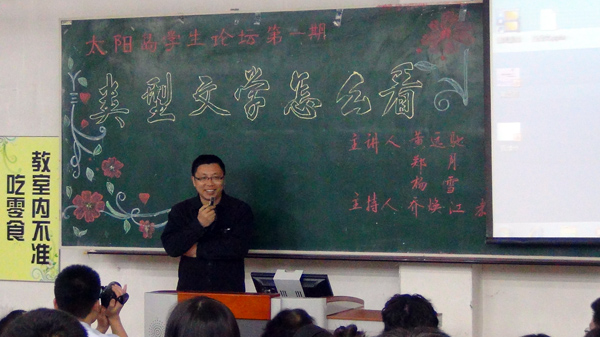 太阳岛学生论坛第一期
类型文学怎么看
主讲人 黄远驰
郑 月
杨 雪
主持人 乔焕江 宏
教室内不准
吃零食